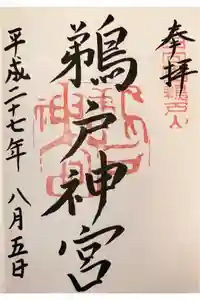 奉拝
鵜戸神宮
平成二十七年 八月五日